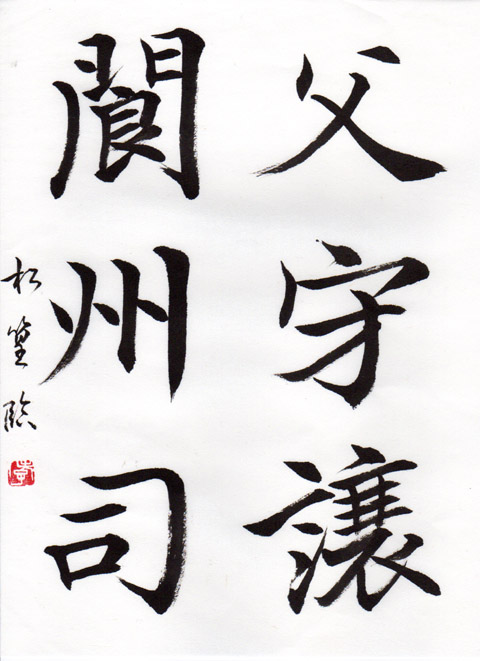 父守讓
閬州司
松篁臨